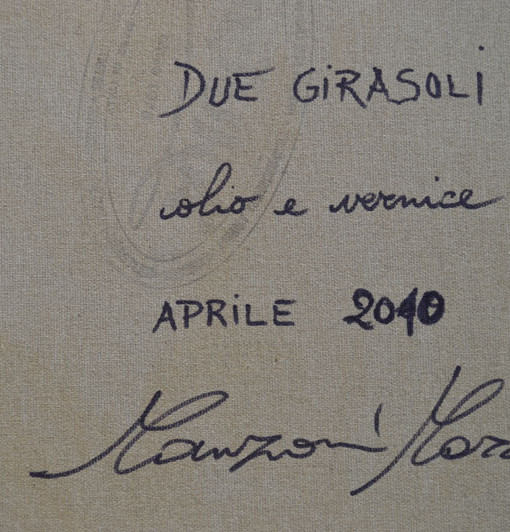 DUE GIRASOLI
olio e vernice
APRILE 2010
Manzoni